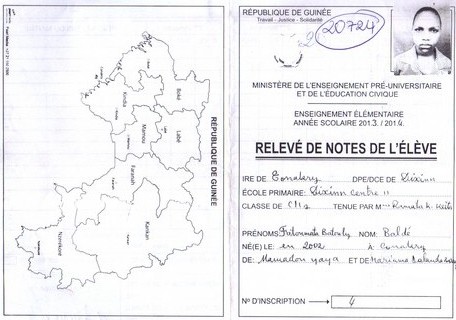 RÉPUBLIQUE DE GUINÉE
Boké
Kindia
Labé
Mamou
Faranah
Kankan
Nzérékoré
RÉPUBLIQUE DE GUINÉE
Travail - Justice - Solidarité
20724
MINISTÈRE DE L'ENSEIGNEMENT PRÉ-UNIVERSITAIRE
ET DE L'ÉDUCATION CIVIQUE
ENSEIGNEMENT ÉLÉMENTAIRE
ANNÉE SCOLAIRE 2013 / 2014
RELEVÉ DE NOTES DE L'ÉLÈVE
IRE DE Conakry DPE/DCE DE Dixinn
ÉCOLE PRIMAIRE: Dixinn Centre II
CLASSE DE TENUE PAR M
PRÉNOMS: Fatoumata NOM: Baldé
NÉ(E) LE en 2002 À: Conakry
DE: Mamadou yaya ET DE Mariama
N° D'INSCRIPTION 4